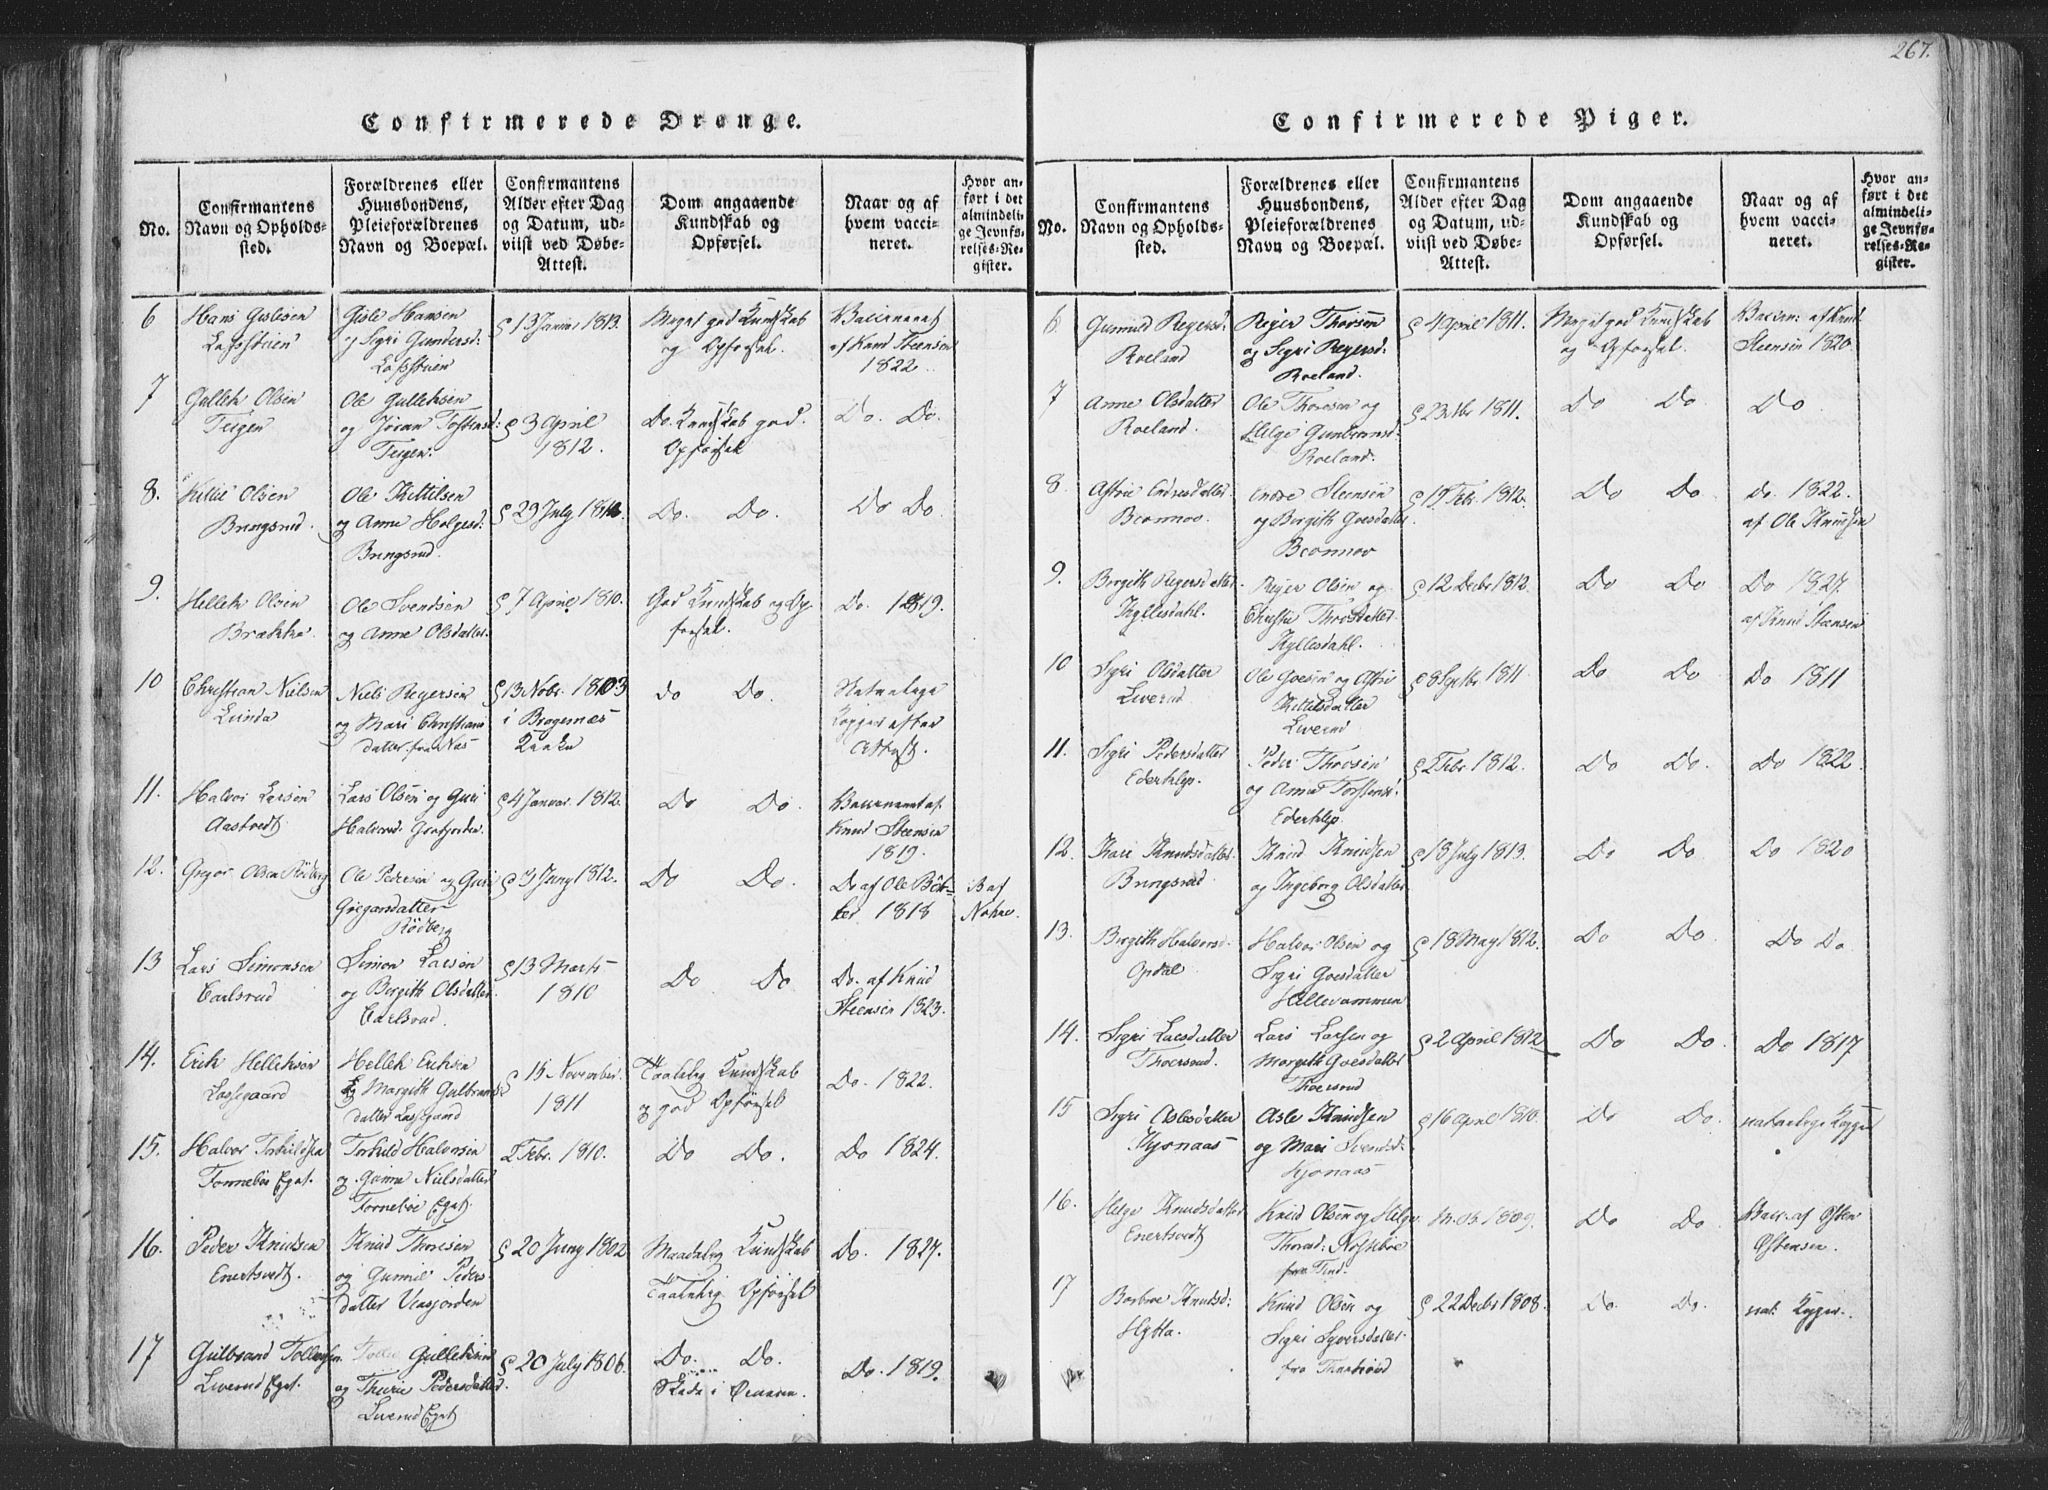 267.
Confirmerede Drenge.
No.
Confirmantens Navn og Opholds-sted.
Forældrenes eller Huusbondens, Pleieforældrenes Navn og Boepæl.
Confirmantens Alder efter Dag og Datum, ud-viist ved Døbe-Attest.
Dom angaaende Kundskab og Opførsel.
Naar og af hvem vacci-neret.
Hvor an-ført i det almindeli-ge Jevnfø-relses-Re-gister.
6 Hans Gislesen
Gisle Hansen og Sigri Gundersd:
f 13 Januar 1813.
Meget god Kundskab og Opførsel.
Vaccineret af Knud Steensen 1822.
7 Gulleh Olsen Teigen
Ole Gullehsen og Jöran Tostensd: Teigen.
f 3 April 1812.
Do. Kundskab god Opførsel
Do. Do.
8. Kittil Olsen Bringsrud.
Ole Kittilsen og Anne Holgesd: Bringsrud.
f 29 July
Do. Do.
Do Do.
9. Helleh Olsen Brække.
Ole Svendsen og Anne Olsdatter.
f 7 April 1810.
God Kundskab og Op-førsel.
Do. 1819.
10 Christian Nielsen Lunda
Niels Regersen og Mari Christians datter fra Næs
f 13 Nobr. 1803 i Bragernæs
do Do.
Naturlige Kopper efter Attest.
11. Halvor Larsen Aastvedt
Lars Olsen og Guri Halvord:
f 4 Januar. 1812.
Do Do.
Vaccineret af Knud Steensen 1819.
12. Gregar Olsen Rödberg
Ole Pedersen og Guri Gregarsdatter Rödberg
f 3 Juny 1812.
Do Do.
Do af Ole 1818
13 Lars Simonsen Carlsrud
Simon Larsen og Birgith Olsdatter. Carlsrud.
f 13 Marts 1810
Do Do
Do. af Knud Steensen 1823.
14. Erik Hellehsen
Helleh Eriksen og Margith Gulbrands datter
f 15 November. 1811
Taalelig Kundskab og god Opförsel
Do. 1822.
15. Halvor Torkildsen Tonnebøe Eget.
Torkild Halvorsen og Nielsdatter Tonnebøe Eget
2 Febr. 1810.
Do Do.
Do 1824.
16. Peder Knudsen Enertsvedt.
Knud Thoresen og Gunnil Peders datter
f 20 Juny 1802
Maadelig Kundskab Taalelig Opførsel
Do. 1827.
17 Gulbrand Tollefsen Liverud Eget.
Gullehsen og Thurie Pedersdatter Liverud Eget
f 20 July 1806.
Do. Do. Skade i
Do. 1819.
Confirmerede Piger.
No.
Confirmantens Navn og Opholds-sted.
Forældrenes eller Huusbondens, Pleieforældrenes Navn og Boepæl.
Confirmantens Alder efter Dag og Datum, ud-viist ved Døbe-Attest.
Dom angaaende Kundskab og Opførsel.
Naar og af hvem vacci-neret.
Hvor an-ført i det almindeli-ge Jevnfø-relses-Re-gister.
6 Gunnild Regersd: Roeland
Reyer Thorsen og Sigri Reyersd: Roeland.
f 4 April 1811.
Meget god Kundskab og Opførsel.
Vaccin: af Knud Steensen 1820.
7 Anne Olsdatter Roeland.
Ole Thorsen og Helge Roeland.
1811.
Do Do.
Do
8. Astrie Endresdatter.
Endre Steensen og Birgith Goesdatter.
Febr. 1812.
Do Do.
do. 1822. af Ole Knudsen
9. Birgith Regersdatter. Kyllesdahl.
Reyer Olsen og Thorsdatter. Kyllesdahl.
f 12 Decbr 1812.
Do Do.
Do 1827. af Knud Steensen
10 Sigri Olsdatter Liverud
Ole Goesen og Astri Kittilsdatter Liverud
f 8 Septbr. 1811
Do Do.
Do 1811
11. Sigri Pedersdatter Ederklep.
Peder Thorsen og Anne Torstensd: Ederklep
2 Febr 1812.
Do Do.
Do 1822.
12. Kari Knudsdatter Bringsrud
Knud Knudsen og Ingeborg Olsdatter
f 18 July 1813.
Do Do.
Do 1820
13. Birgith Halvorsd. Opdal
Halvor Olsen og Sigri Goesdatter
f 18 May 1812.
Do Do.
Do Do
14. Sigri Larsdatter Thoersrud.
Lars Larsen og Margith Goesdatter Thoersrud
f 2 April 1812
Do Do.
Do 1817
15 Sigri Aslesdatter Kjonaas
Asle Knudsen og Mari Svendsd: Kjonaas
f 16 April 1810.
Do Do.
naturlige Kopper
16. Helge Knudsdatter Enertsvedt
Knud Olsen og Helge Thorsd:
1809.
Do Do.
Vacc. af Østen Østensen.
17 Barbroe Knudsd: Hytta.
Knud Olsen og Sigri Syversdatter. fra
f 22 Decbr 1808.
Do. Do.
nat: Kopper.